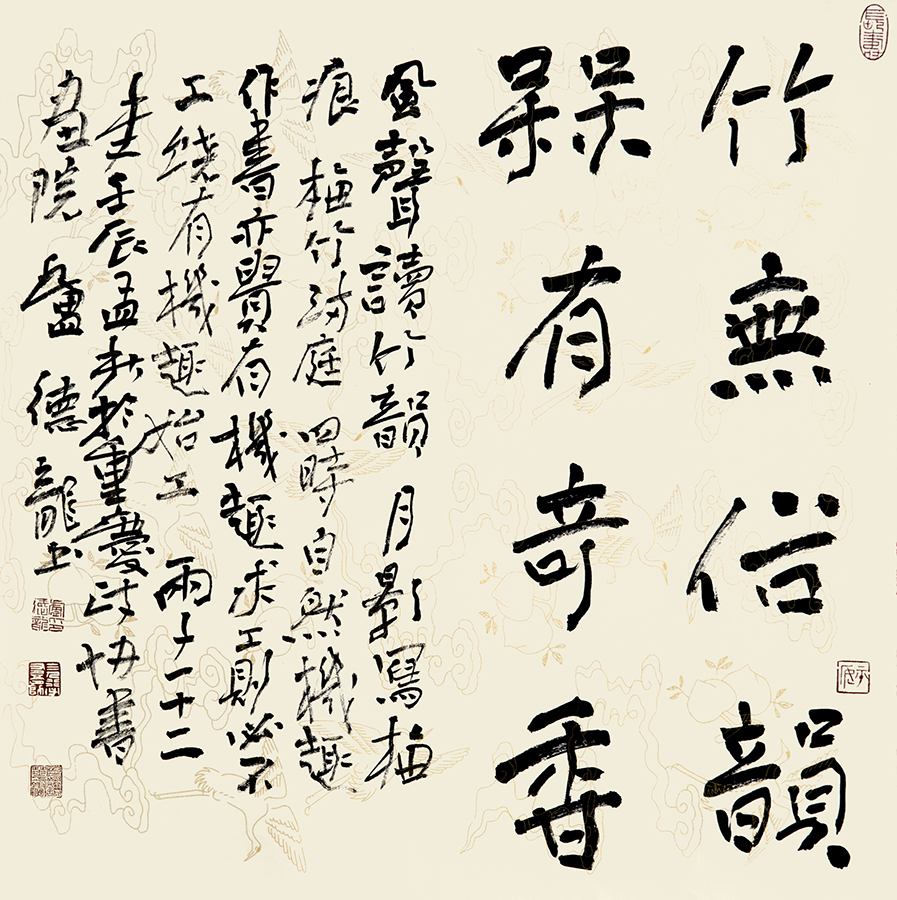 竹無俗韻
槑有奇香
風聲讀竹韻月影寫梅
痕梅竹庭四時自然機趣
作書亦貴有機趣求工則必不
工繞有機趣始工兩子一十二
壬辰孟秋於重慶政協書
畫院盧德龍书